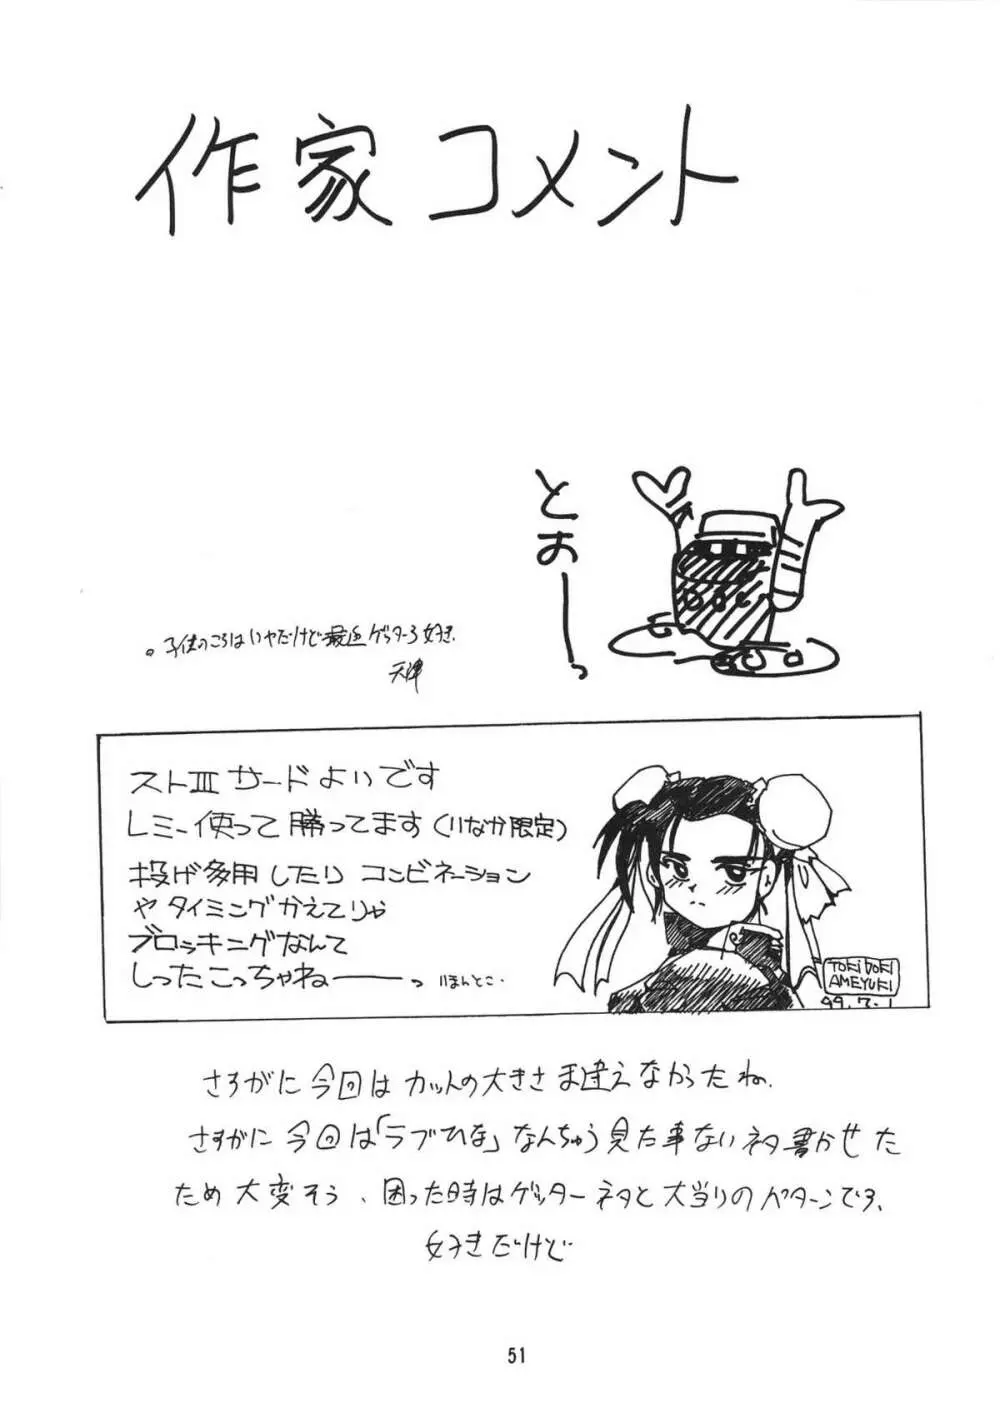 作家コメント
とおーっ
。子供のころはいやだけど最近ゲッター3好き.
天津
ストⅢサードよいです
レミー使って勝ってます(いなか限定)
投げ多用したりコンビネーション
やタイミングかえてりゃ
ブロッキングなんて
しったこっちゃねーーっ いほんとこ.
TOKIDOKI
AMEYUKI
99.7.1
さすがに今回はカットの大きさま違えなかったね.
さすがに今回は「ラブひな」なんちゅう見た事ないネタ書かせた
ため大変そう、困った時はゲッターネタと大当りのパターンです、
好きだけど
51